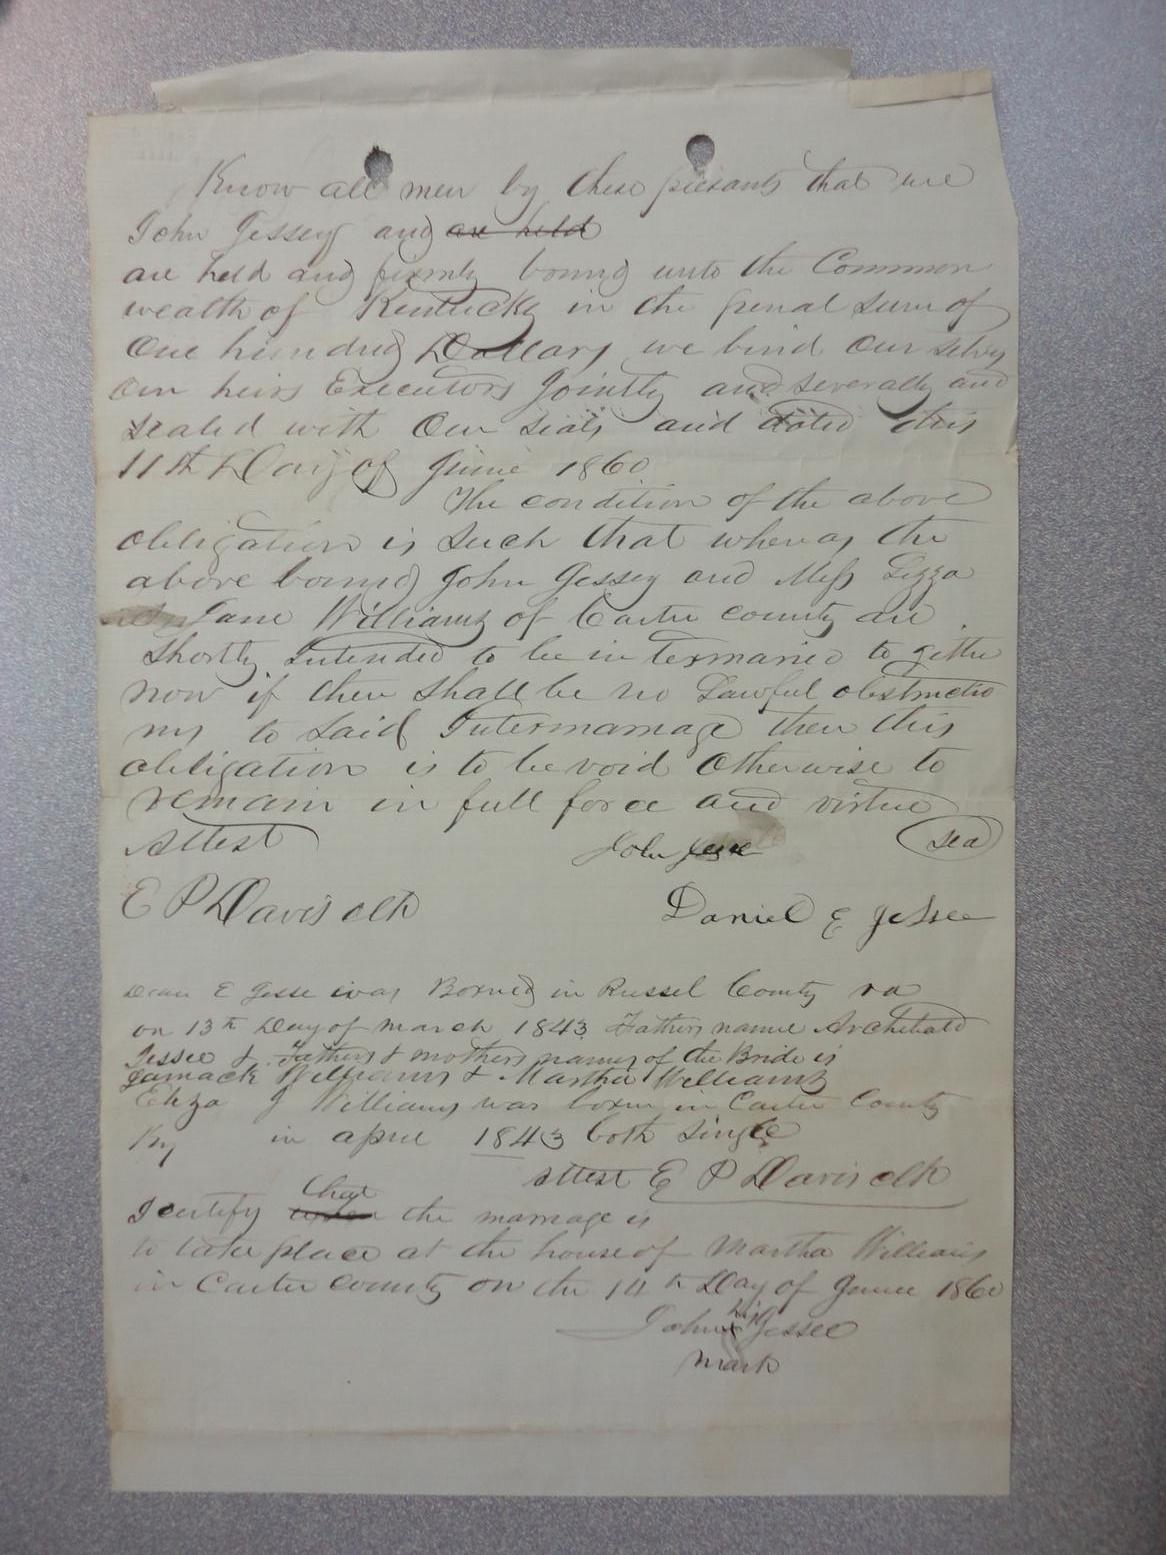 Know all men by these presants that we
John Jessey and are held
are held and firmly bound unto the Common
wealth of Kentucky in the penal sum of
One hundred Dollars we bind our selvs
our heirs Executors Jointly and severally and
sealed with our seals and dated this
11th Day of June 1860
The condition of the above
obligation is such that whereas the
above bound John Jessey and Miss Lizza
Jane Williams of Carter county are
Shortly Intended to be in termaried to gether
now if there shall be no Lawful obstructio
ns to said Intermarriage then this
obligation is to be void otherwise to
remain in full force and virtue
Attest John Jesse seal
E P Davis clk Daniel E Jessee
E Jesse was Borned in Russel County va
on 13th Day of march 1843 Fathers name Archibald
Jessee & Fathers & mothers names of the Bride is
Williams & Martha Williams
Eliza J Williams was born in Carter County
Ky in april 1843 both single
Attest E P Davis clk
that
I certify the marriage is
to take place at the house of Martha Williams
in Carter county on the 14th Day of June 1860
his
John x Jessee
mark